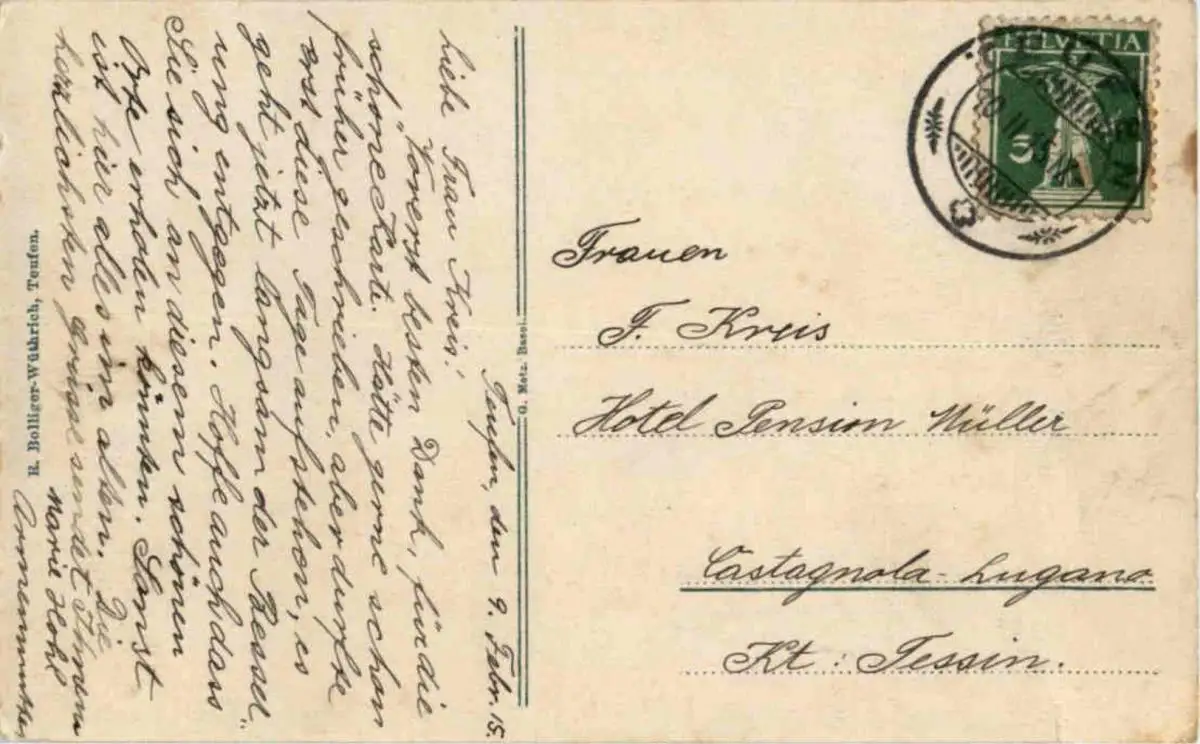 Teufen, den 9. Febr. 15.
Liebe Frau Kreis!
Vorerst besten Dank, für die
schöne Karte. Hätte gerne schon
früher geschrieben, aber durfte
erst diese Tage aufstehen, es
geht jetzt langsam der Bessel„
ung entgegen. Hoffe auch dass
Sie sich an diesem schönen
Orte erholen könnten. Sonst
ist hier alles im alten. Die
herzlichsten Grüsse sendet Ihnen
Marie Hohl
Armenmutter
R. Bolliger-Wüthrich, Teufen.
G. Metz, Basel.
HELVETIA
5
TEUFEN
10. II. 15
Frauen
F. Kreis
Hotel Pension Müller
Castagnola-Lugano
Kt: Tessin.